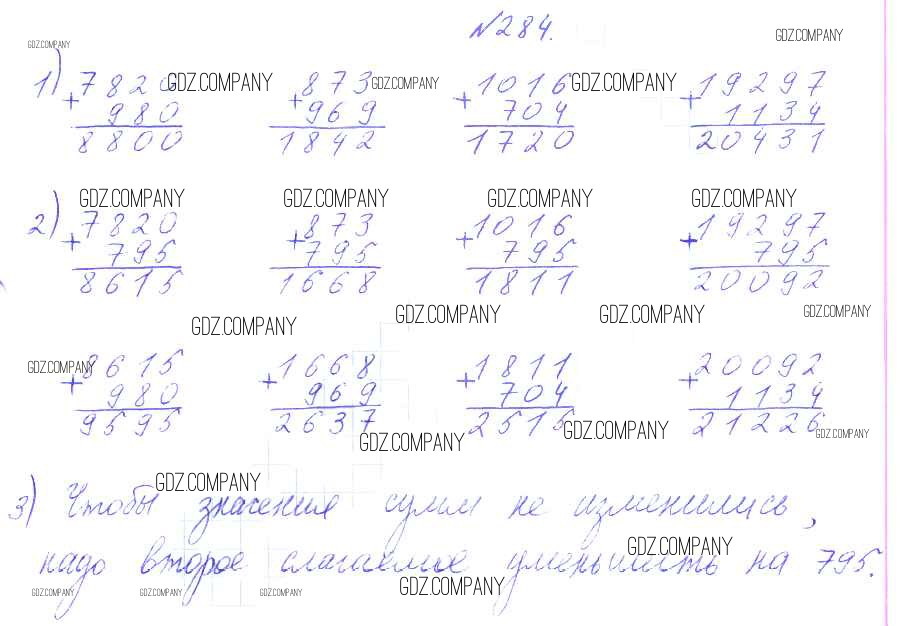 №284.
GDZ.COMPANY GDZ.COMPANY
1) 7820 873 1016 19297
GDZ.COMPANY GDZ.COMPANY GDZ.COMPANY
+ 980 + 969 + 704 + 1134
8800 1842 1720 20431
GDZ.COMPANY GDZ.COMPANY GDZ.COMPANY GDZ.COMPANY
2) 7820 873 1016 19297
+ 795 + 795 + 795 + 795
8615 1668 1811 20092
GDZ.COMPANY GDZ.COMPANY GDZ.COMPANY GDZ.COMPANY
8615 1668 1811 20092
GDZ.COMPANY
+ 980 + 969 + 704 + 1134
9595 2637 2515 21226
GDZ.COMPANY GDZ.COMPANY GDZ.COMPANY
GDZ.COMPANY
3) Чтобы значения сумм не изменились,
GDZ.COMPANY
надо второе слагаемое уменьшить на 795.
GDZ.COMPANY GDZ.COMPANY GDZ.COMPANY GDZ.COMPANY